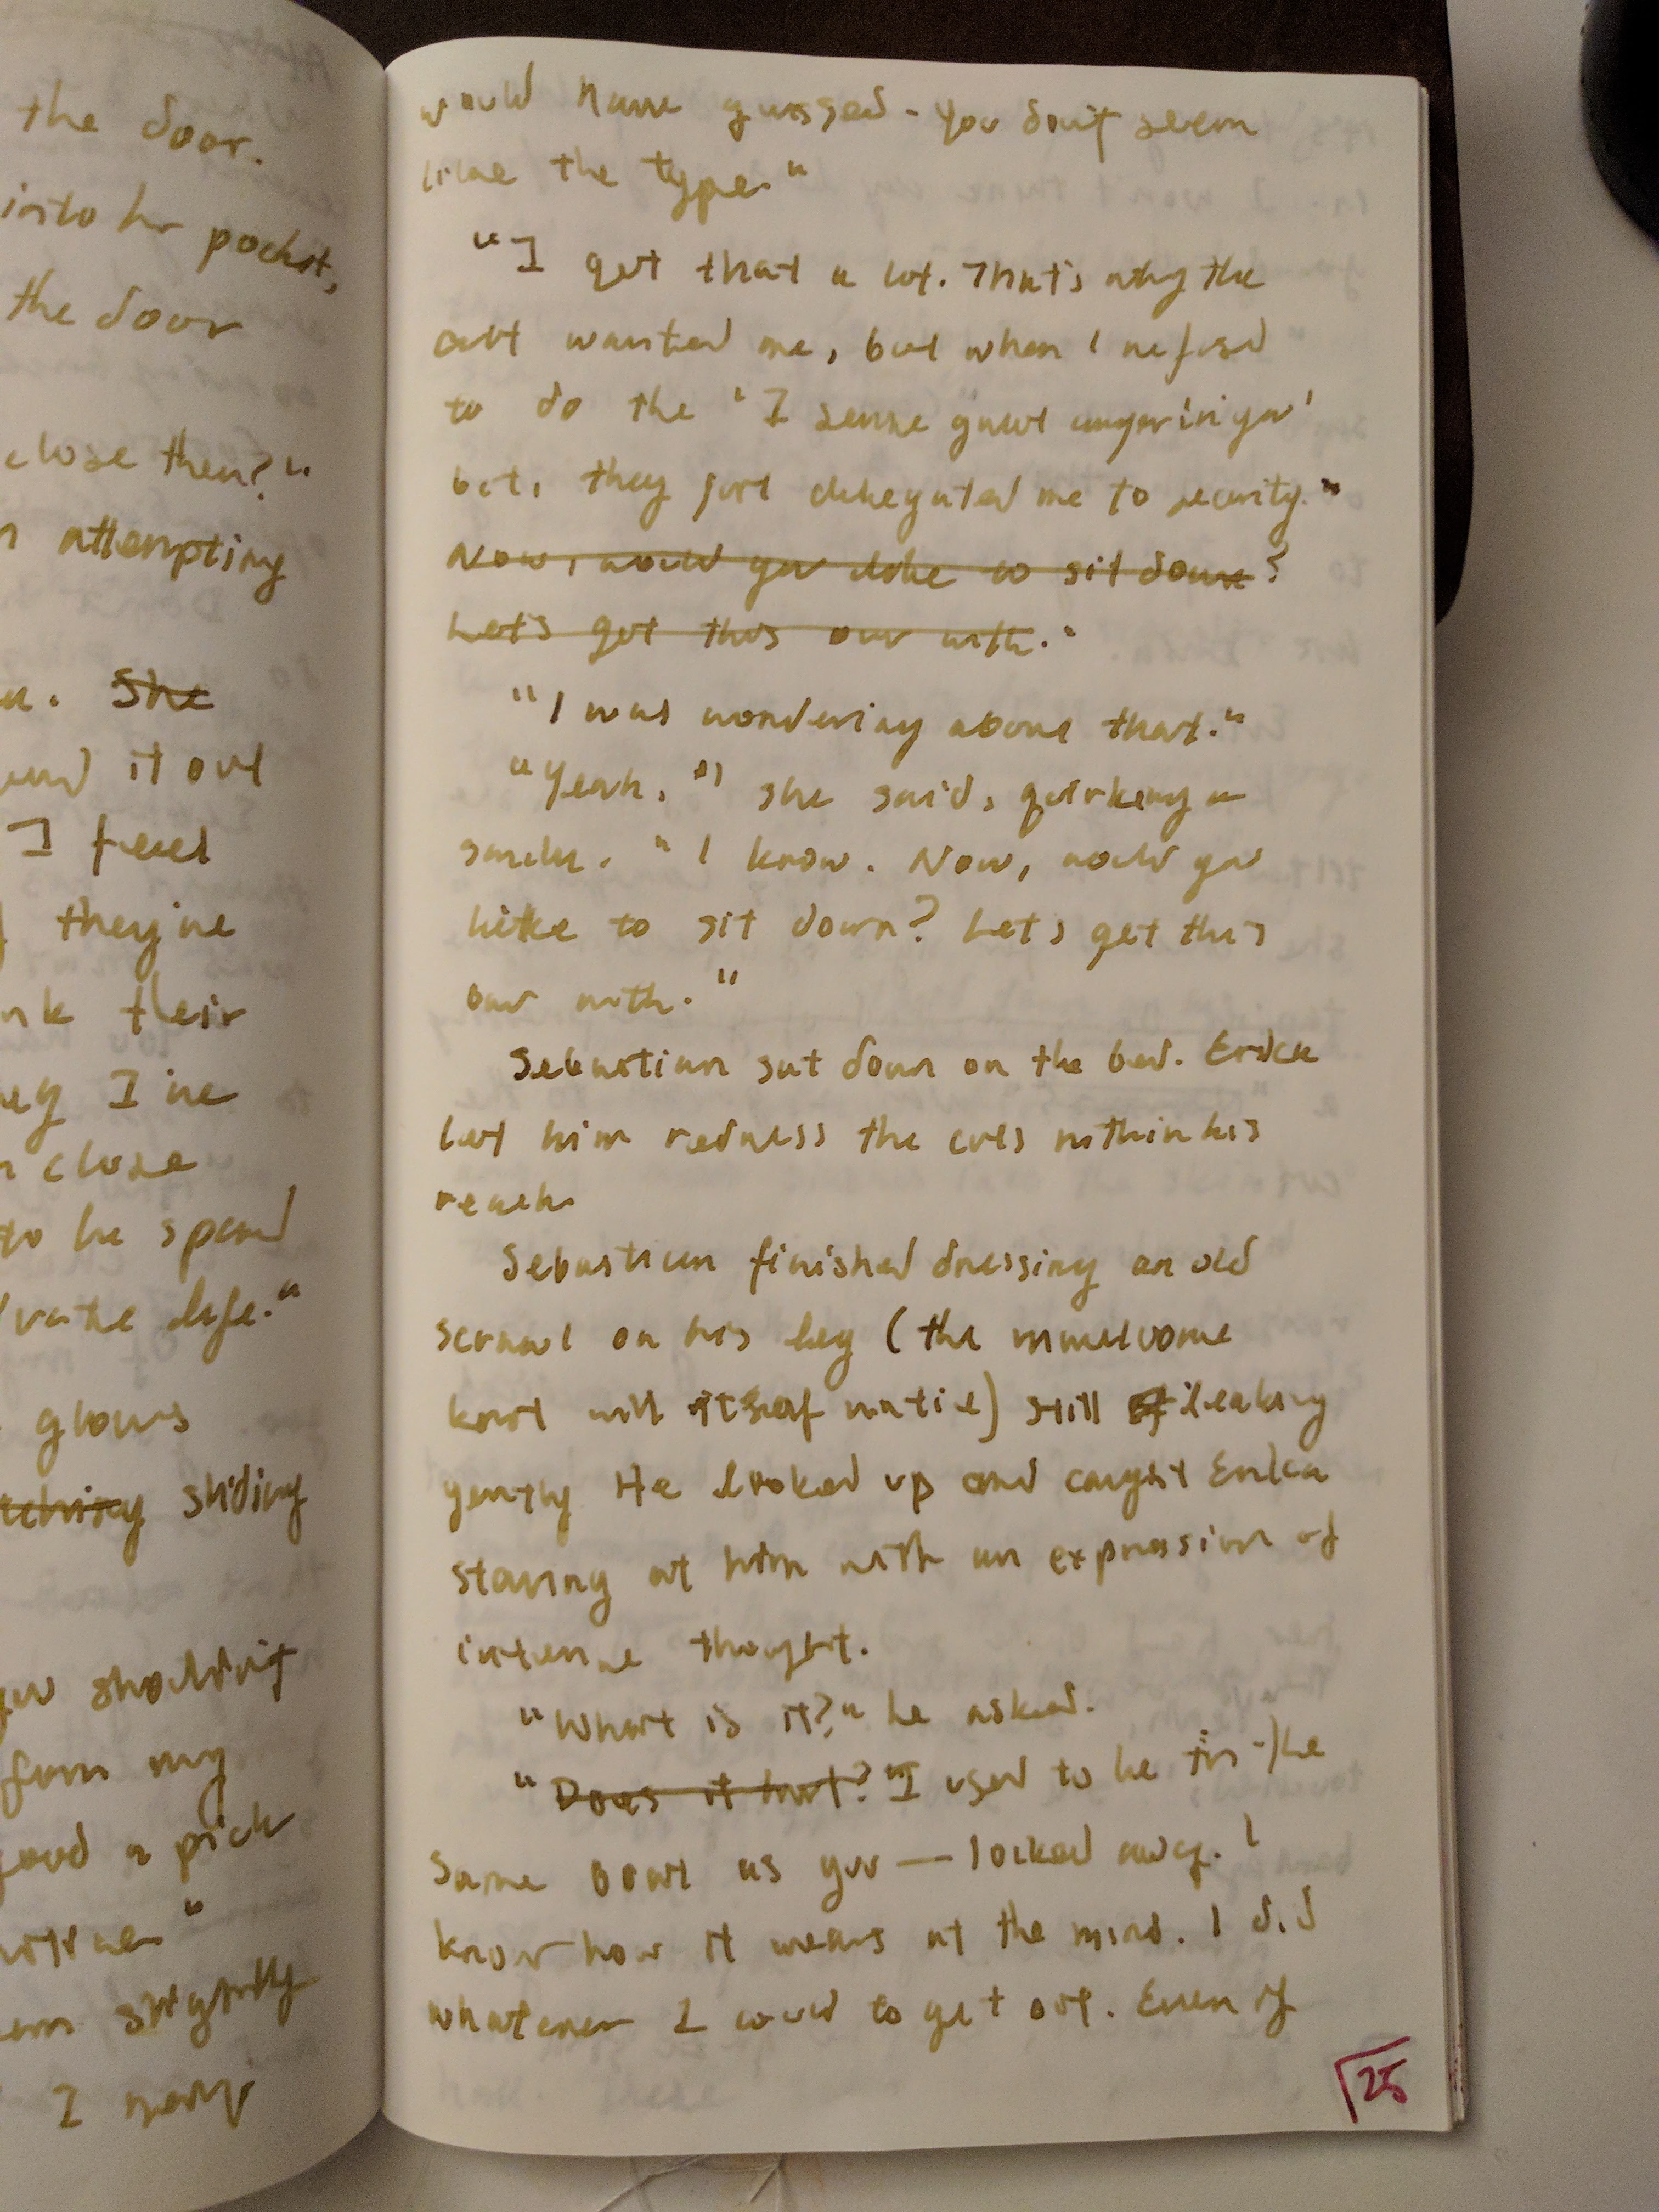 the door.
into her pocket,
the door
close then?"
attempting
She
it out
I feel
they've
their
I've
close
to be spend
life."
glows
sliding
shouldn't
from my
a pick
slightly
I
would have guessed - you don't seem
like the type."
"I get that a lot. That's why the
cult wanted me, but when I refused
to do the 'I sense great anger in you'
bit, they just delegated me to security."
Now, would you like to sit down?
Let's get this over with."
"I was wondering about that."
"Yeah," she said, quirking a
smile. "I know. Now, would you
like to sit down? Let's get this
over with."
Sebastian sat down on the bed. Erica
let him redress the cuts within his
reach.
Sebastian finished dressing an old
scrawl on his leg (the
knot will itself untie) still leaking
gently. He looked up and caught Erica
staring at him with an expression of
intense thought.
"What is it?" he asked.
"Does it hurt?" "I used to be in the
same boat as you — locked away. I
know how it wears at the mind. I did
whatever I could to get out. Even if
25